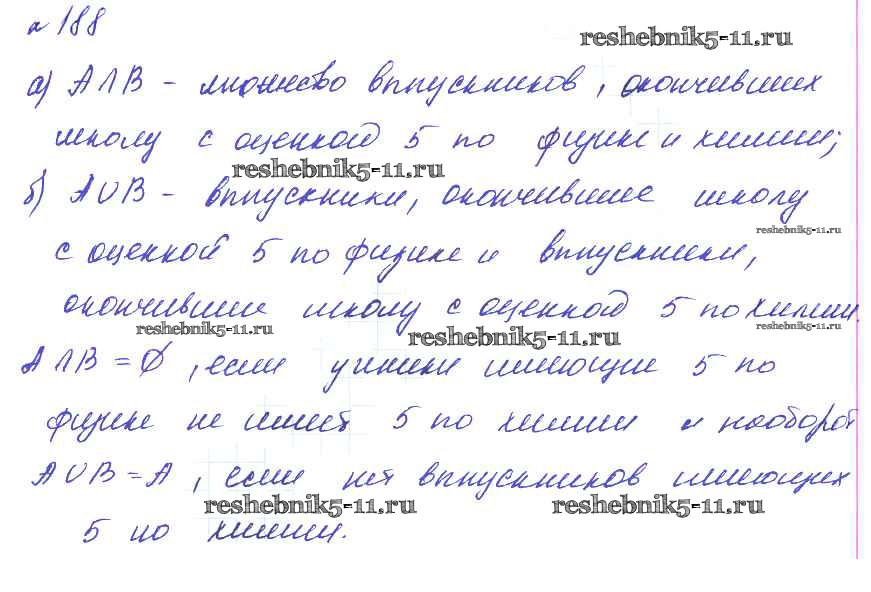 № 188
reshebnik5-11.ru
а) A∩B - множество выпускников, окончивших
школу с оценкой 5 по физике и химии;
reshebnik5-11.ru
б) A∪B - выпускники, окончившие школу
reshebnik5-11.ru
с оценкой 5 по физике и выпускники,
окончившие школу с оценкой 5 по химии.
reshebnik5-11.ru reshebnik5-11.ru reshebnik5-11.ru
A∩B = Ø, если ученики имеющие 5 по
физике не имеет 5 по химии и наоборот
A∪B = A, если нет выпускников имеющих
reshebnik5-11.ru reshebnik5-11.ru
5 по химии.